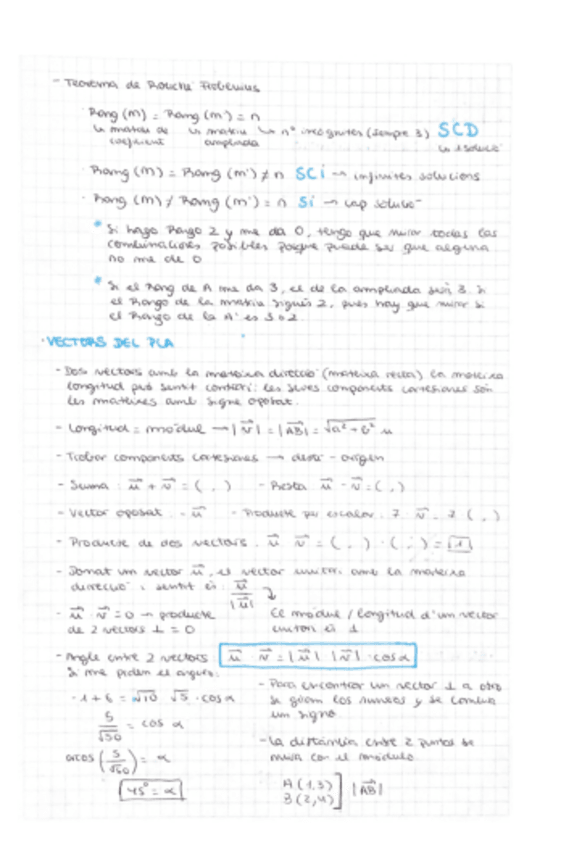 - Teorema de Rouché Frobenius
Rang (M) = Rang (M') = n
↳ matriu de ↳ matriu ↳ nº incognites (sempre 3) SCD
coeficient ampliada ↳ 1 solució
· Rang (M) = Rang (M') ≠ n SCi → infinites solucions
· Rang (M) ≠ Rang (M') = n Si → cap solució
* Si hago Rango 2 y me da 0, tengo que mirar todas las
combinaciones posibles porque puede ser que alguna
no me de 0
* Si el Rang de A me da 3, el de la ampliada será 3. Si
el Rango de la matriu sigues 2, pues hay que mirar si
el Rango de la A' es 3 o 2.
· VECTORS DEL PLA
- Dos vectors amb la mateixa direcció (mateixa recta) la mateixa
longitud però sentit contrari: les seves components cartesianes són
les mateixes amb signe oposat.
- Longitud = mòdul → |v⃗| = |AB⃗| = √a² + b² u
- Trobar components cartesianes → destí - origen
- Suma : u⃗ + v⃗ = ( , ) - Resta u⃗ - v⃗ = ( , )
- Vector oposat : - u⃗ - Producte per escalar : 7 · v⃗ = 7 ( , )
- Producte de dos vectors . u⃗ · v⃗ = ( , ) · ( , ) =
- Donat un vector u⃗, el vector unitari amb la mateixa
direcció i sentit és u⃗ / |u⃗|
- u⃗ · v⃗ = 0 → producte
de 2 vectors ⊥ = 0
El mòdul / longitud d'un vector
unitari és 1
- Angle entre 2 vectors u⃗ · v⃗ = |u⃗| · |v⃗| · cos α
Si me piden el angulo:
· -1 + 6 = √10 · √5 · cos α
5 / √50 = cos α
arcos (5 / √50) = α
45° = α
- Para encontrar un vector ⊥ a otro
se giran los numeros y se cambia
un signo.
- La distancia entre 2 puntos se
mira con el modulo
A (1,3)
B (2,4) ] |AB⃗|